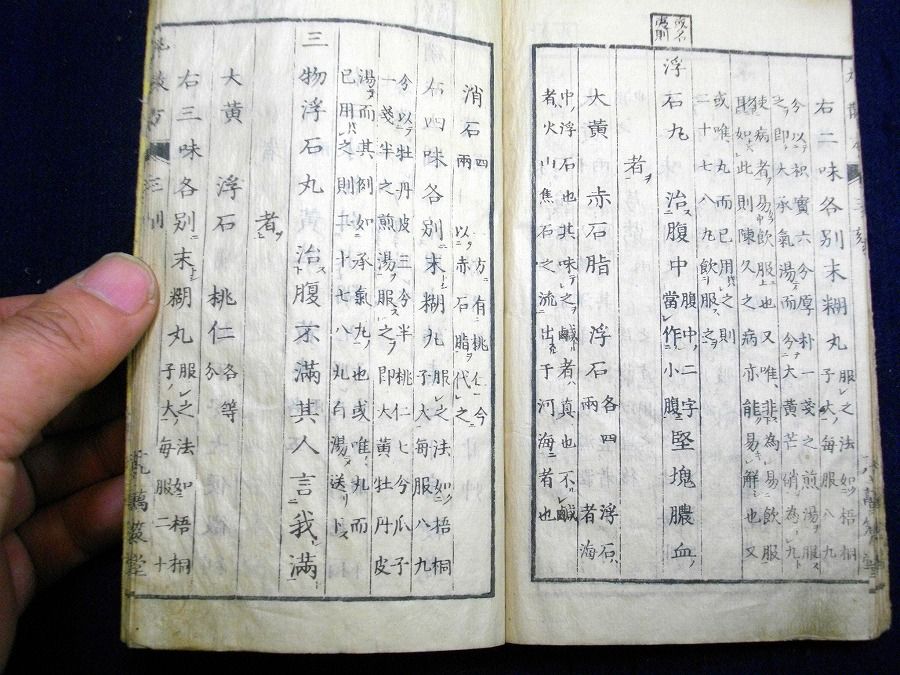 右二味各別末糊丸 服之法如梧桐
子大每服八九
分以枳實六分厚朴一戔之煎湯服
之即大承氣湯而分大黃芒硝為丸
使病者易飲服也又唯非為易飲服
如此則陳久之病亦能易解也又
或唯丸而已用之則
二十七八九飲服之
改名
浮石丸 治腹中 腹中二字
當作小腹 堅塊膿血
者
大黃 赤石脂 浮石 各四
兩 浮石
者海
中浮石也其味之鹹者真也不鹹
者火山焦石之流出于河海者也
消石 四
兩 方有桃仁今
以赤石脂代之
右四味各別末糊丸 服之法如梧桐
子大每服八九
分以牡丹皮三分半桃仁七分瓜子
一戔半之煎湯服之即大黃牡丹皮
湯而其例如承氣丸也或唯丸而
已用之則二十七八丸白湯送下
三物浮石丸 治腹不滿其人言我滿
者
大黃 浮石 桃仁 各等
分
右三味各別末糊丸 服之法如梧桐
子大每服二十